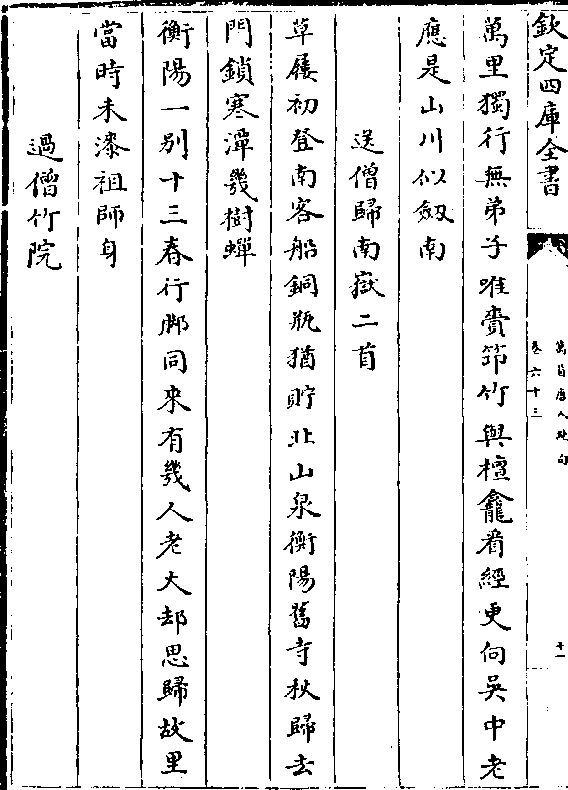 欽定四庫全書
萬首唐人絶句
卷六十三
十一
萬里獨行無弟子唯賷笻竹與檀龕看經更向吳中老
應是山川似劔南
送僧歸南嶽二首
草屨初登南客船銅瓶猶貯北山泉衡陽舊寺秋歸去
門鎖寒潭幾樹蟬
衡陽一别十三春行脚同來有幾人老大却思歸故里
當時未漆祖師身
過僧竹院